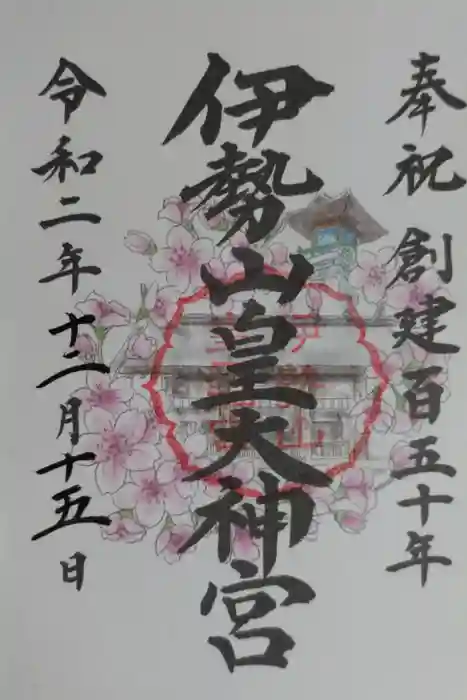 奉祝 創建百五十年
伊勢山皇大神宮
令和二年十二月十五日